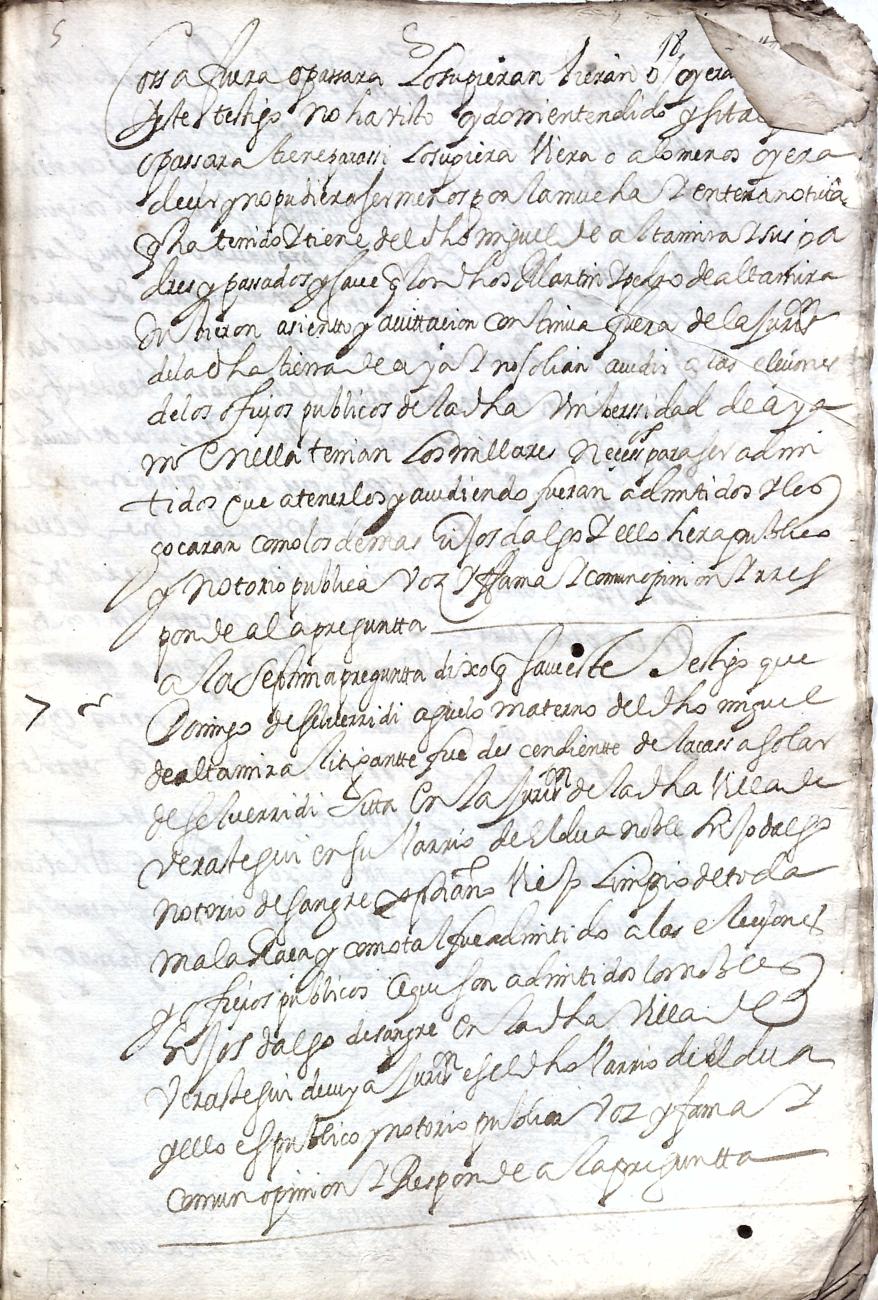 18
cossa fuera o passara Lo supieran vieran o oyera
y este testigo no ha visto oydo ni entendido y si tal
o passara tiene para ssi Lo supiera viera o a lo menos oyera
decir y no pudiera ser menos por la mucha y entera noticia
q ha tenido y tiene del dho miguel de altamira y sus pa
dres y passados y save q los dhos Martin y pedro de altamira
tubieron asiento y avittacion continua fuera de la jurison
de la dha tierra de aya y no solian acudir a las eleciones
de los ofiçios publicos de la dha Unibersidad de aya
ni en ella tenian Los millares neces para ser admi
tidos que a tenerlos y acudiendo fueran admitidos y les
tocaran como los demas hijos dalgo y ello hera publico
y notorio publica voz y ffama y comun opinion y rres
ponde a la preguntta
7 a la septima preguntta dixo q save este testigo que
Domingo de selverridi aguelo materno del dho miguel
de altamira litigantte fue descendientte de la cassa solar
de selverridi sitta en la jurison de la dha Villa de
verastegui en su varrio de Eldua noble hijo dalgo
notorio de sangre xpstiano viejo Limpio de toda
mala Raca y como tal fue admitido a las eleciones
y ofiçios publicos a que son admitidos los nobles
hijos dalgo de sangre en la dha Villa de
verastegui de cuya jurison es el dho varrio de Eldua
y ello es publico y notorio publica voz y fama y
comun opinion y Responde a la preguntta